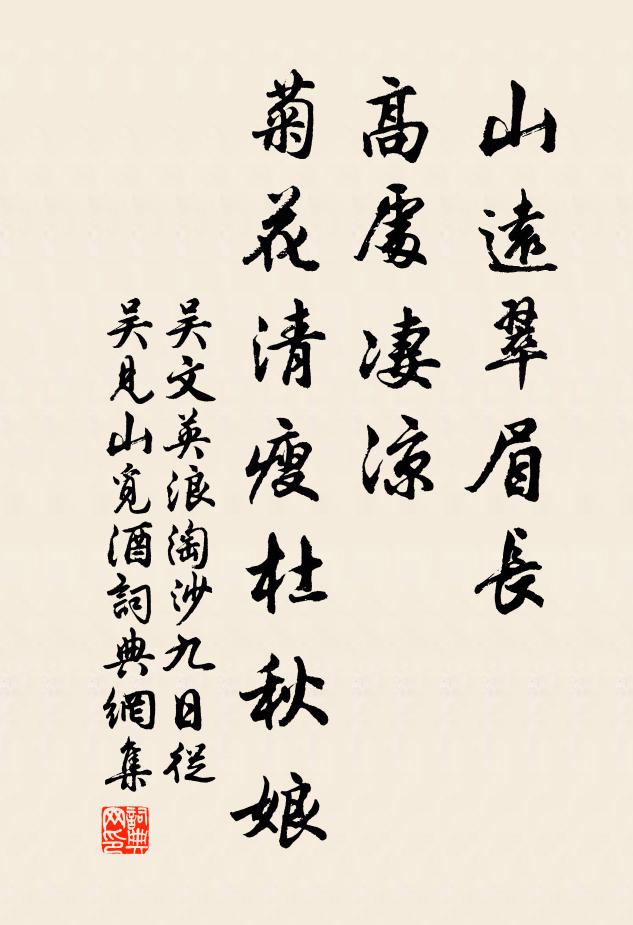 山遠翠眉長
高處淒涼
菊花清瘦杜秋娘
吴文英浪淘沙九日從
吴見山覓酒詞典網集
詞典
网印